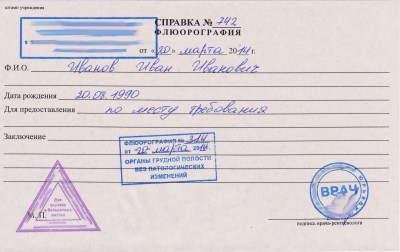 штамп учреждения
СПРАВКА № 742
ФЛЮОРОГРАФИЯ
от «20» марта 2014г.
Ф.И.О. Иванов Иван Иванович
Дата рождения 20.08.1990
Для предоставления по месту требования
Заключение
ФЛЮОРОГРАФИЯ № 314
от "20" марта 2014
ОРГАНЫ ГРУДНОЙ ПОЛОСТИ
БЕЗ ПАТОЛОГИЧЕСКИХ
ИЗМЕНЕНИЙ
Для
справок
и больничных
листов
М.П.
ВРАЧ
подпись врача-рентгенолога